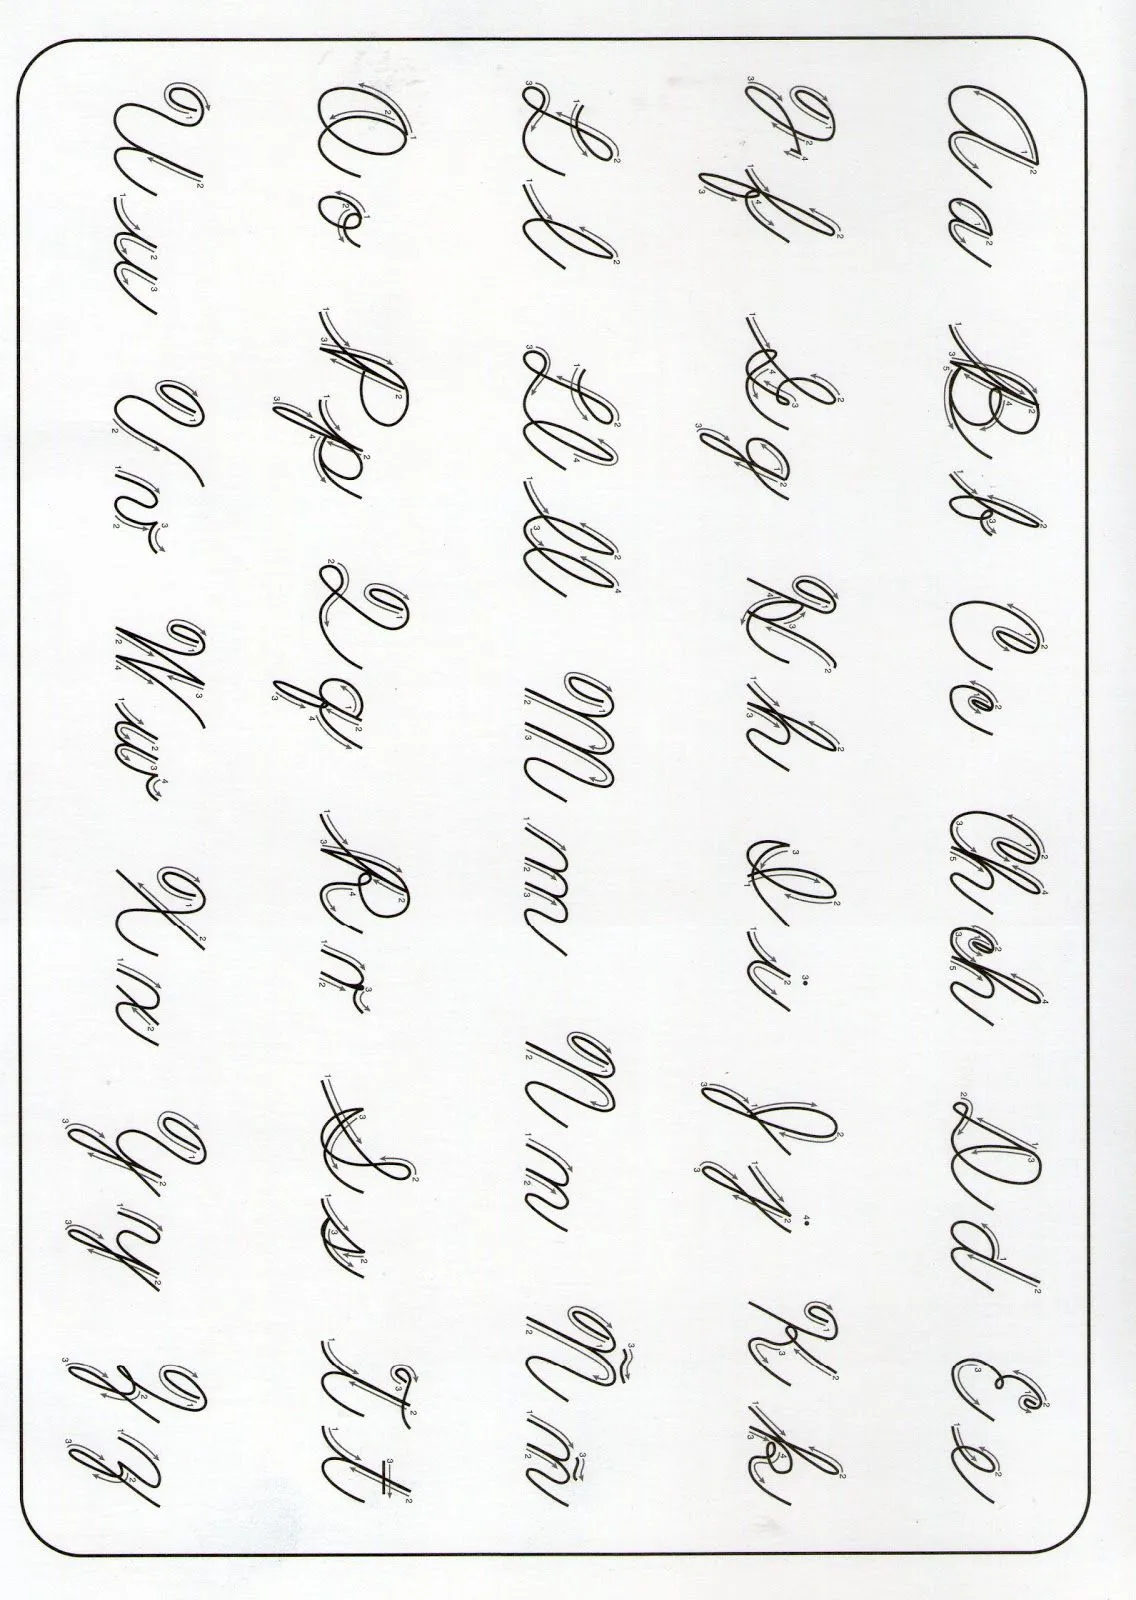 A a B b C c Ch ch D d E e
F f G g H h I i J j K k
L l Ll ll M m N n Ñ ñ
O o P p Q q R r S s T t
U u V v W w X x Y y Z z